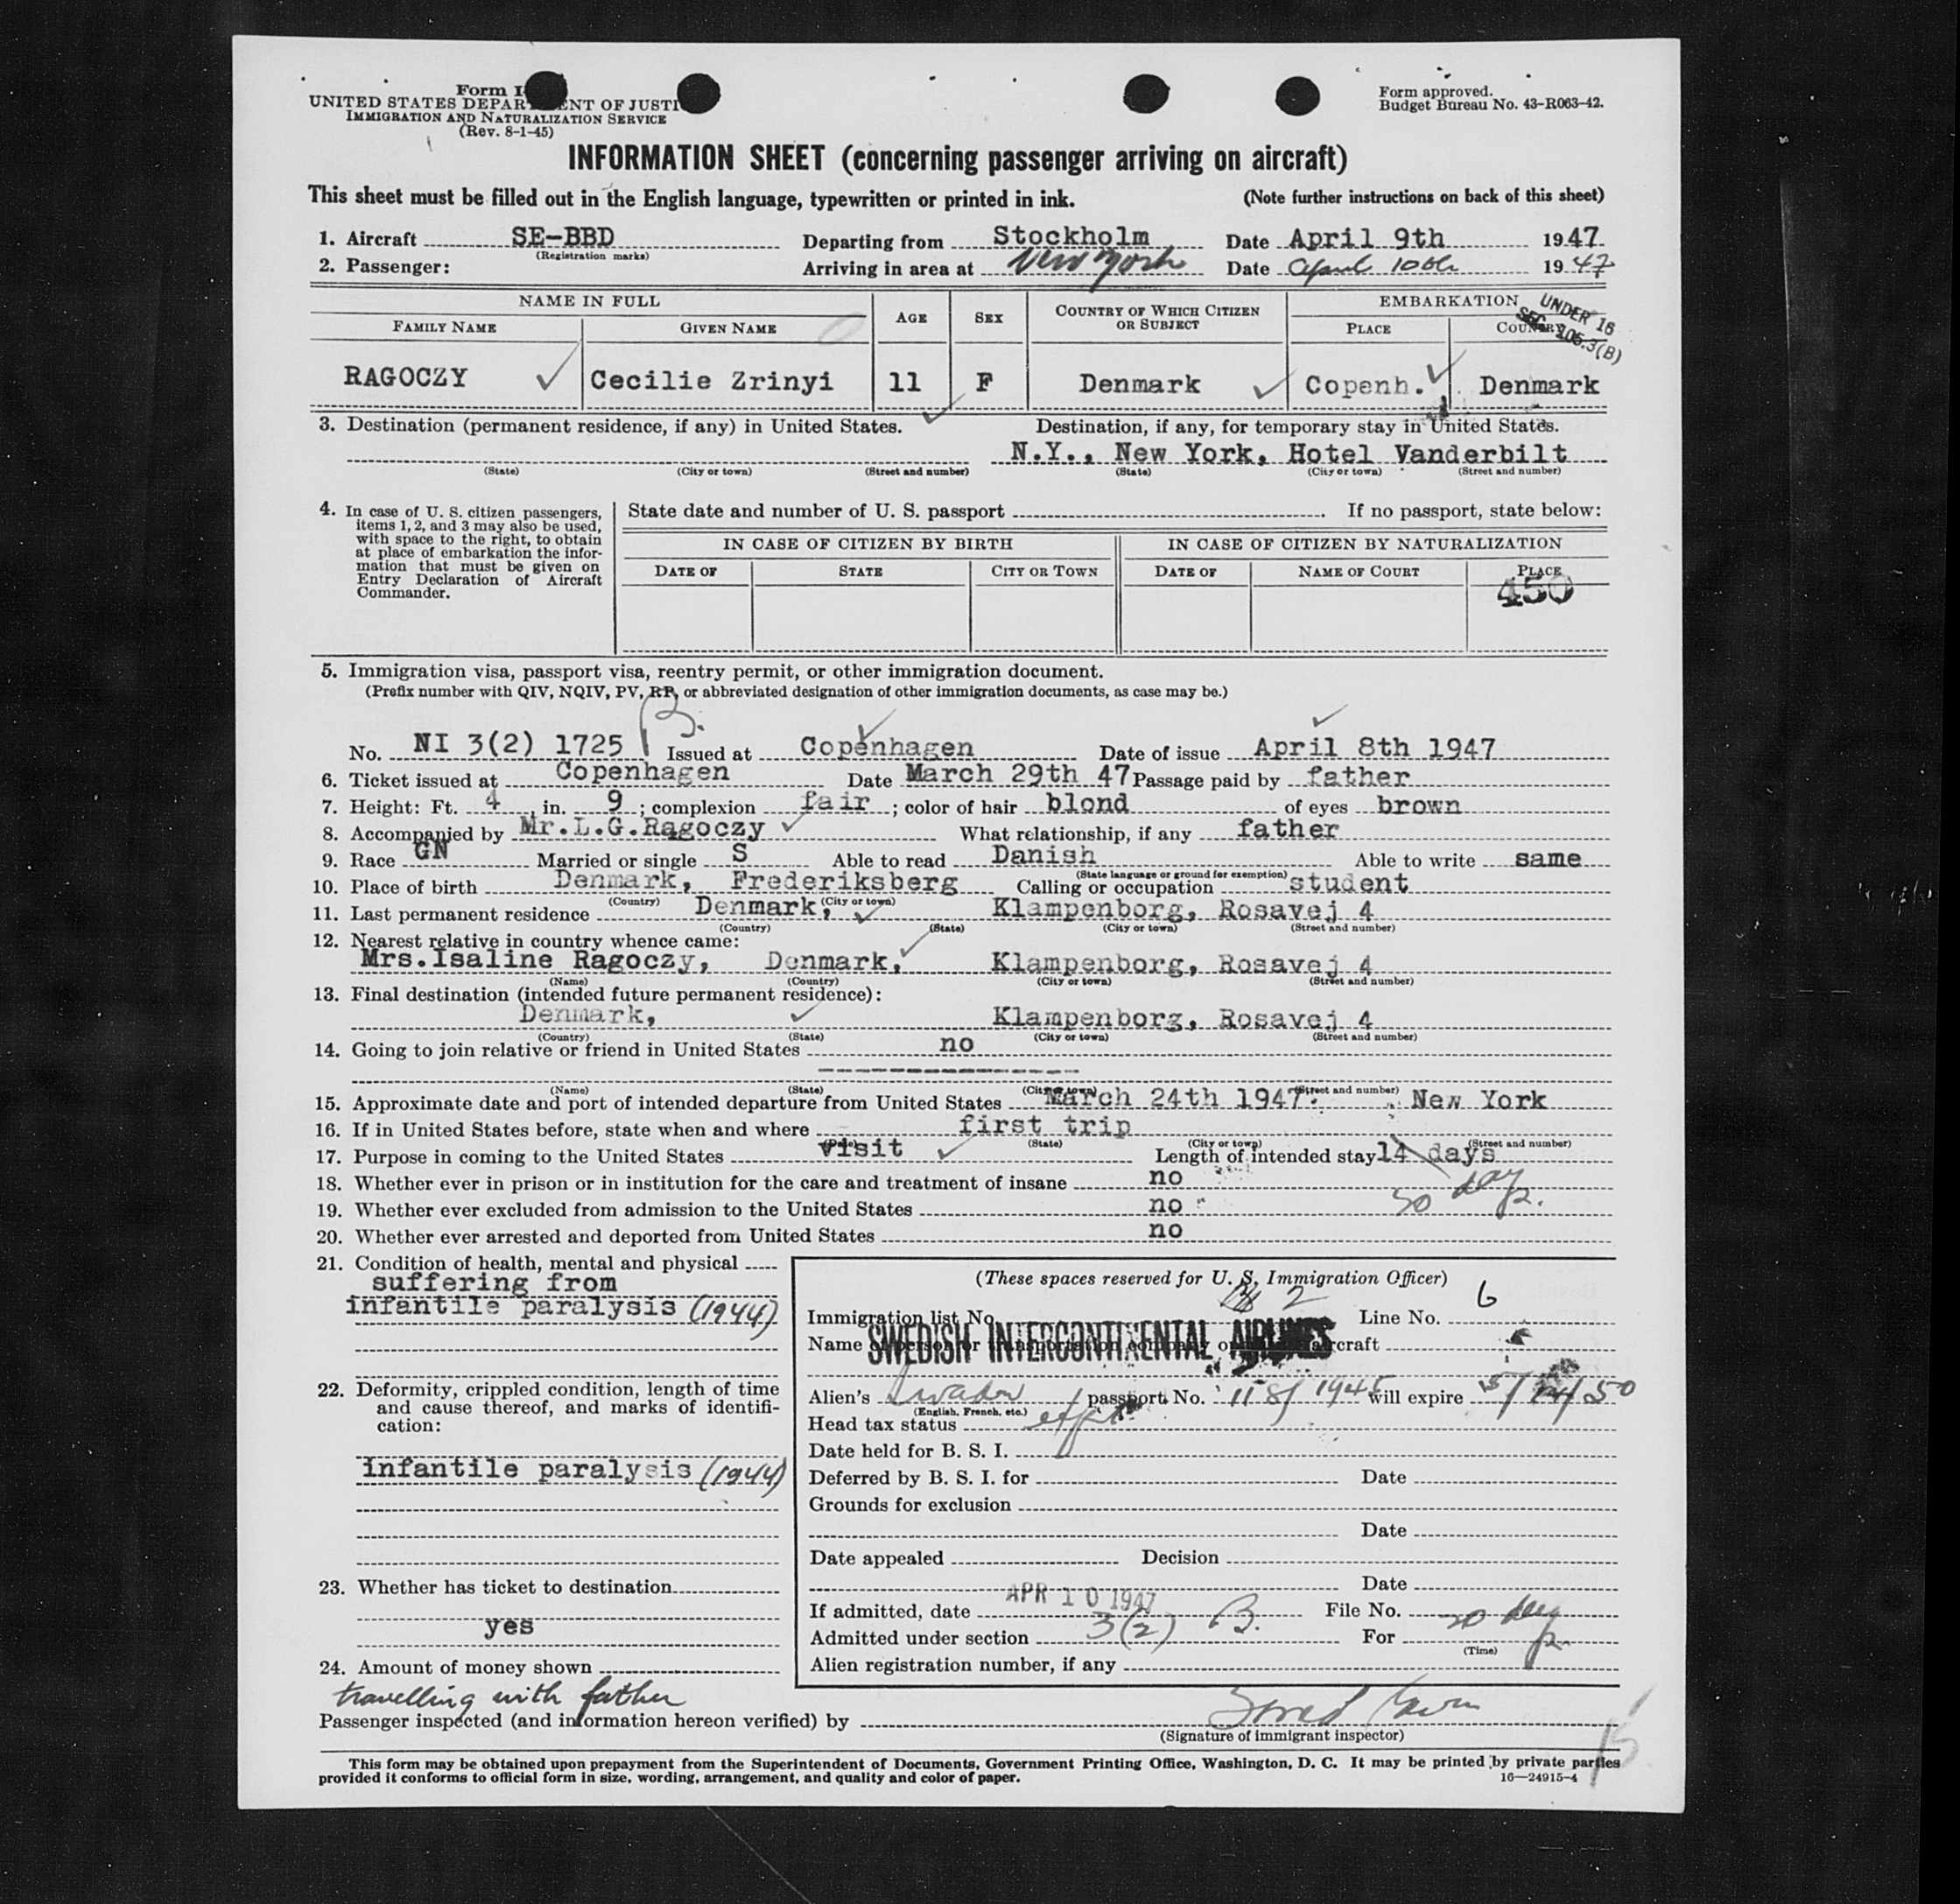 Form I-
UNITED STATES DEPARTMENT OF JUSTI
IMMIGRATION AND NATURALIZATION SERVICE
(Rev. 8-1-45)
Form approved.
Budget Bureau No. 43-R063-42.
INFORMATION SHEET (concerning passenger arriving on aircraft)
This sheet must be filled out in the English language, typewritten or printed in ink. (Note further instructions on back of this sheet)
1. Aircraft SE-BBD Departing from Stockholm Date April 9th 1947
(Registration marks)
2. Passenger: Arriving in area at New York Date April 10th 1947
NAME IN FULL AGE SEX COUNTRY OF WHICH CITIZEN OR SUBJECT EMBARKATION
FAMILY NAME GIVEN NAME PLACE COUNTRY
UNDER 16
SEC. 105.3(B)
RAGOCZY Cecilie Zrinyi 11 F Denmark Copenh. Denmark
3. Destination (permanent residence, if any) in United States. Destination, if any, for temporary stay in United States.
N.Y., New York, Hotel Vanderbilt
(State) (City or town) (Street and number) (State) (City or town) (Street and number)
4. In case of U. S. citizen passengers, items 1, 2, and 3 may also be used, with space to the right, to obtain at place of embarkation the information that must be given on Entry Declaration of Aircraft Commander.
State date and number of U. S. passport If no passport, state below:
IN CASE OF CITIZEN BY BIRTH IN CASE OF CITIZEN BY NATURALIZATION
DATE OF STATE CITY OR TOWN DATE OF NAME OF COURT PLACE
450
5. Immigration visa, passport visa, reentry permit, or other immigration document.
(Prefix number with QIV, NQIV, PV, RP, or abbreviated designation of other immigration documents, as case may be.)
B.
No. NI 3(2) 1725 Issued at Copenhagen Date of issue April 8th 1947
6. Ticket issued at Copenhagen Date March 29th 47 Passage paid by father
7. Height: Ft. 4 in. 9; complexion fair; color of hair blond of eyes brown
8. Accompanied by Mr.L.G.Ragoczy What relationship, if any father
9. Race GN Married or single S Able to read Danish Able to write same
(State language or ground for exemption)
10. Place of birth Denmark, Frederiksberg Calling or occupation student
(Country) (City or town)
11. Last permanent residence Denmark, Klampenborg, Rosavej 4
(Country) (State) (City or town) (Street and number)
12. Nearest relative in country whence came:
Mrs.Isaline Ragoczy, Denmark, Klampenborg, Rosavej 4
(Name) (Country) (City or town) (Street and number)
13. Final destination (intended future permanent residence):
Denmark, Klampenborg, Rosavej 4
(Country) (State) (City or town) (Street and number)
14. Going to join relative or friend in United States no
(Name) (State) (City or town) (Street and number)
15. Approximate date and port of intended departure from United States March 24th 1947. New York
16. If in United States before, state when and where first trip
(Date) (State) (City or town) (Street and number)
17. Purpose in coming to the United States visit Length of intended stay 14 days
30 days.
18. Whether ever in prison or in institution for the care and treatment of insane no
19. Whether ever excluded from admission to the United States no
20. Whether ever arrested and deported from United States no
21. Condition of health, mental and physical
suffering from
infantile paralysis (1944)
22. Deformity, crippled condition, length of time and cause thereof, and marks of identification:
infantile paralysis (1944)
23. Whether has ticket to destination
yes
24. Amount of money shown
travelling with father
(These spaces reserved for U. S. Immigration Officer)
Immigration list No. 2 Line No. 6
Name SWEDISH INTERCONTINENTAL AIRLINES aircraft
Alien's passport No. 118/1945 will expire 5/ /50
(English, French, etc.)
Head tax status
Date held for B. S. I.
Deferred by B. S. I. for Date
Grounds for exclusion
Date
Date appealed Decision
Date
If admitted, date APR 10 1947 File No.
Admitted under section 3(2) B. For 30 days
(Time)
Alien registration number, if any
Passenger inspected (and information hereon verified) by
(Signature of immigrant inspector)
This form may be obtained upon prepayment from the Superintendent of Documents, Government Printing Office, Washington, D. C. It may be printed by private parties
provided it conforms to official form in size, wording, arrangement, and quality and color of paper. 16—24915-4